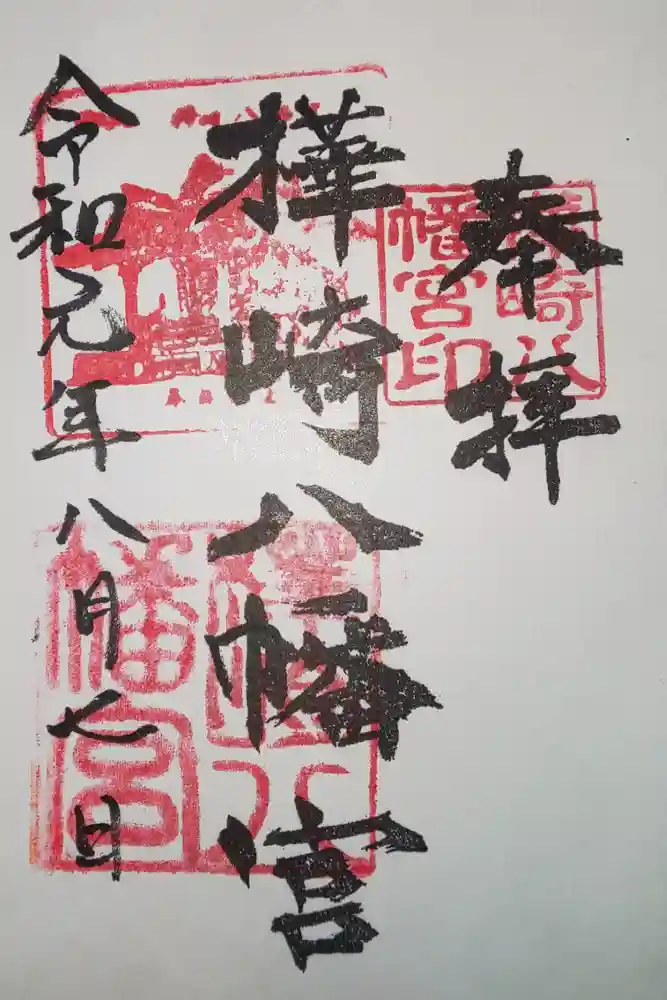 奉拝
樺崎八幡宮
令和元年八月七日
樺崎八
幡宮印
樺崎八
幡宮